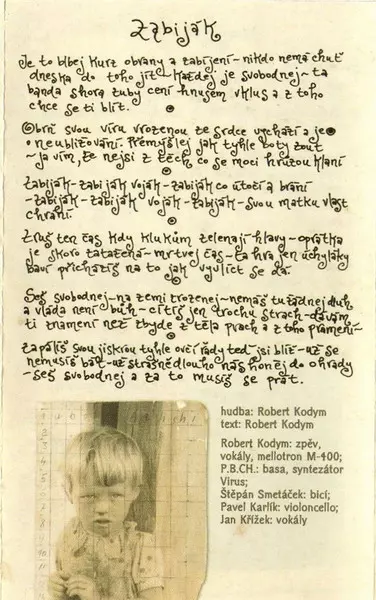 Zabiják
Je to blbej kurz obrany a zabíjení – nikdo nemá chuť
dneska do toho jít – každej je svobodnej – ta
banda shora zuby cení hnusem vklus a z toho
chce se ti blít.
Obrň svou víru vrozenou ze srdce vychází a je
o neubližování. Přemýšlej jak tyhle boty zout
– já vím, že nejsi z těch co se moci hrůzou klaní
Zabiják – zabiják voják – zabiják co útočí a brání
– zabiják – zabiják voják – zabiják – svou matku vlast
chrání.
Zruš ten čas kdy klukům zelenají hlavy – oprátka
je skoro zatažená – mrtvej čas – ta hra jen úchyláky
baví přicházíš na to jak vyulít se dá.
Seš svobodnej – na zemi zrozenej – nemáš tu žádnej dluh
a vláda není bůh – cítíš jen trochu strach – dávám
ti znamení než zbyde z těla prach a z toho pramení –
zapálíš svou jiskrou tyhle ovčí řady teď jsi blíž – už se
nemusíš bát – už strašně dlouho nás honěj do ohrady
– seš svobodnej a za to musíš se prát.
hudba: Robert Kodym
text: Robert Kodym
Robert Kodym: zpěv,
vokály, mellotron M-400;
P.B.CH.: basa, syntezátor
Virus;
Štěpán Smetáček: bicí;
Pavel Karlík: violoncello;
Jan Křížek: vokály